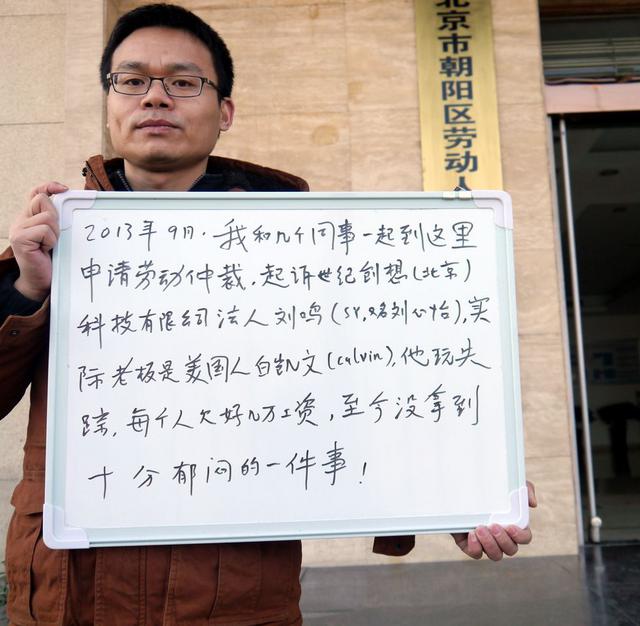 北京市朝阳区劳动人
2013年9月.我和几个同事一起到这里
申请劳动仲裁,起诉世纪创想(北京)
科技有限公司法人刘鸣(sy,又名刘心怡),实
际老板是美国人白凯文(calvin),他玩失
踪,每个人欠好几万工资,至今没拿到
十分郁闷的一件事!